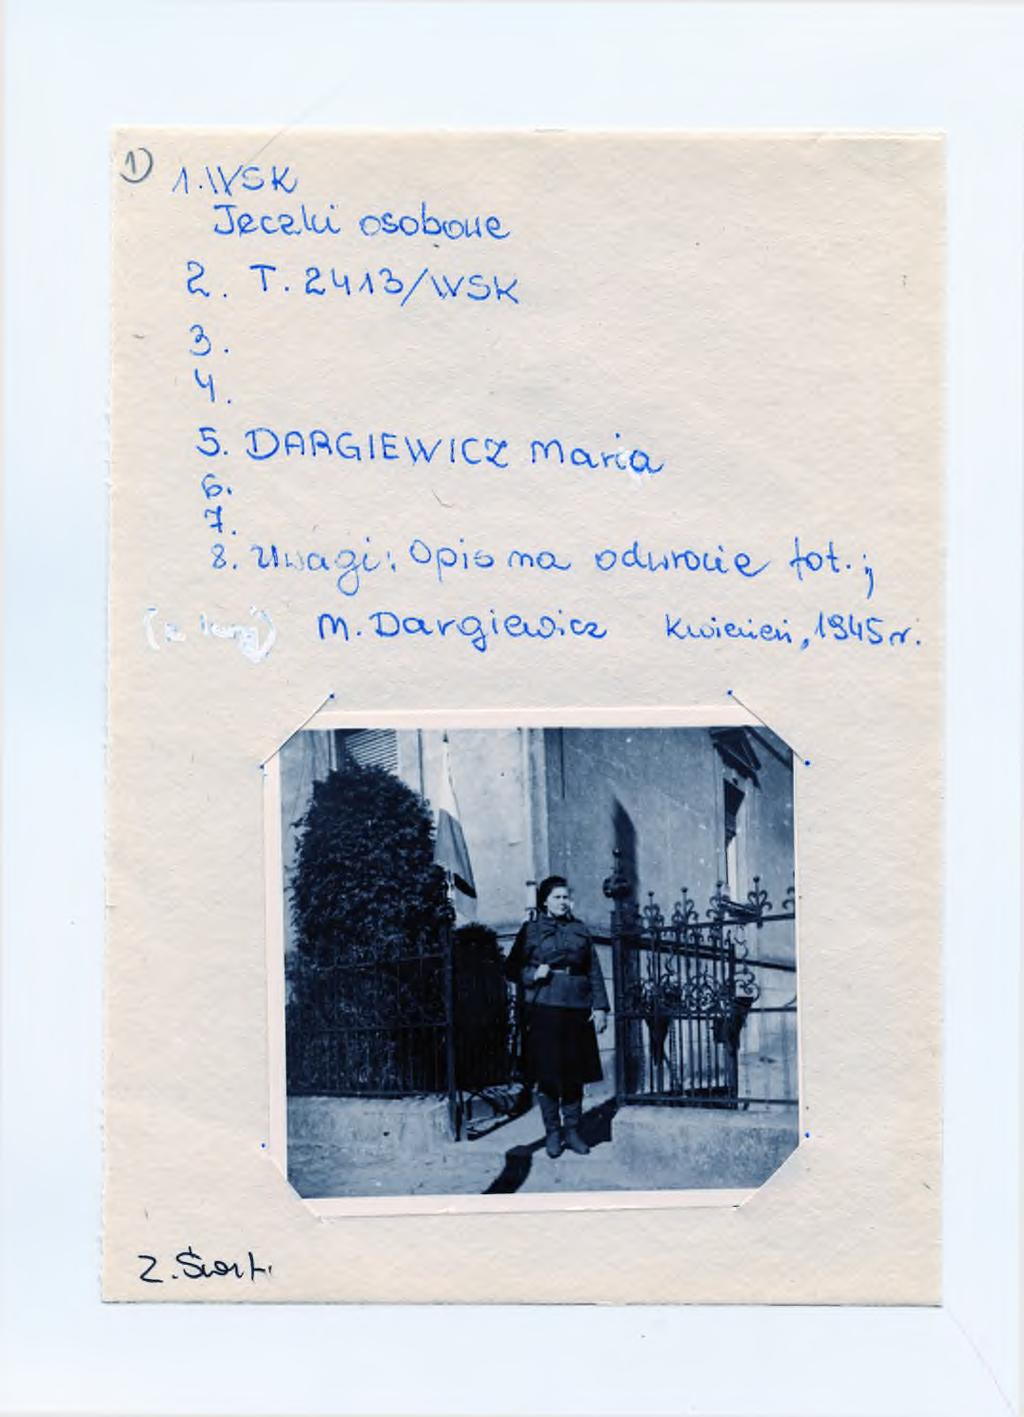 1)
1. WSK
Teczki osobowe
2. T. 2413/WSK
3.
4.
5. DARGIEWICZ Maria
6.
7.
8. Uwagi: Opis na odwrocie fot.;
M. Dargiewicz Kwiecień, 1945 r.